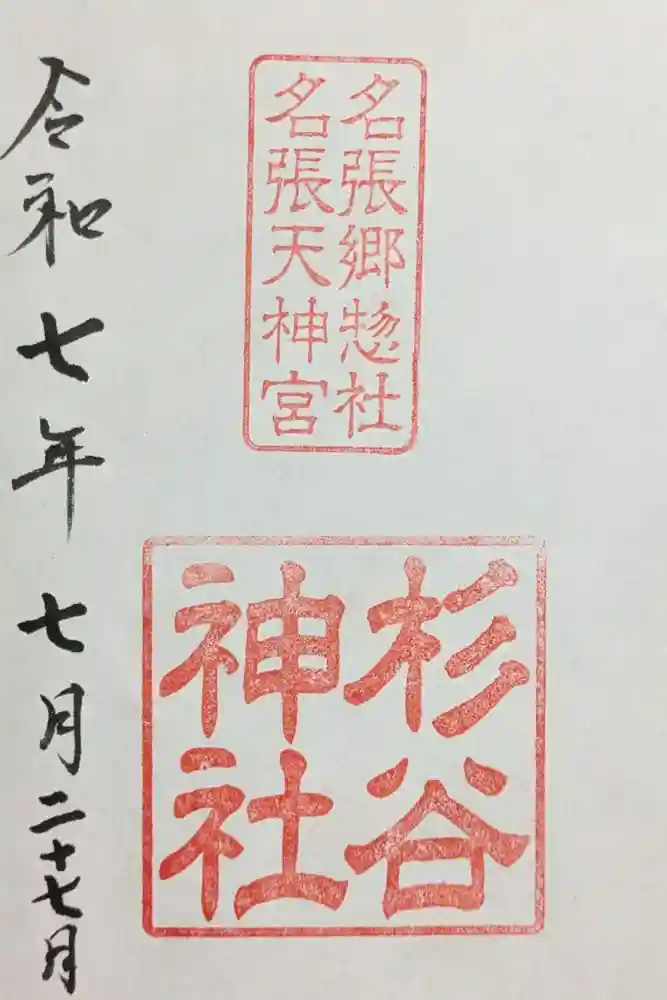 名張郷惣社
名張天神宮
杉谷
神社
令和七年七月二十七月